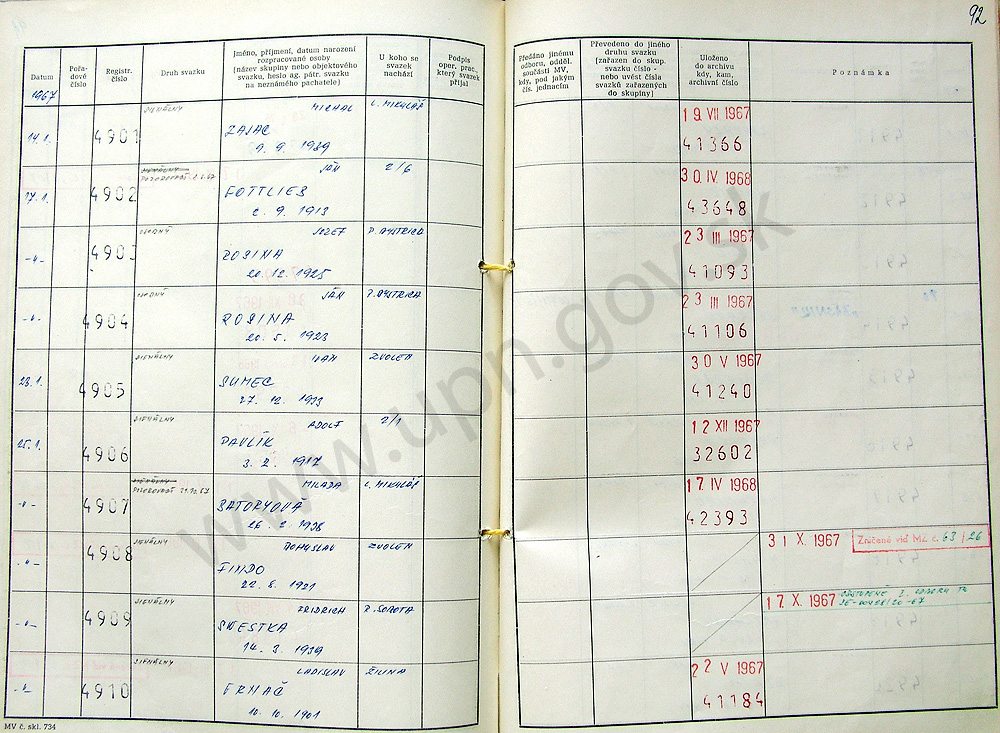 92
Datum
Pořadové číslo
Registr. číslo
Druh svazku
Jméno, příjmení, datum narození rozpracované osoby
(název skupiny nebo objektového svazku, heslo ag. pátr. svazku na neznámého pachatele)
U koho se svazek nachází
Podpis oper. prac., který svazek přijal
Předáno jinému odboru, odděl. součásti MV, kdy, pod jakým čís. jednacím
Převedeno do jiného druhu svazku (zařazen do skup. svazku číslo - nebo uvést čísla svazků zařazených do skupiny)
Uloženo do archivu kdy, kam, archivní číslo
Poznámka
1967
14.1. 4901 SIGNÁLNY MICHAL L. MIKULÁŠ 19. VII 1967
ZAJAC 41366
9. 9. 1939
17.1. 4902 POZOROVAŤ JÁN 2/6 30. IV. 1968
GOTTLIEB 43648
2. 9. 1913
-"- 4903 OSOBNÝ JOZEF P. BYSTRICA 23 III 1967
ROSINA 41093
20. 12. 1925
-"- 4904 OSOBNÝ JÁN P. BYSTRICA 23 III 1967
ROSINA 41106
20. 5. 1923
23.1. 4905 SIGNÁLNY IVAN ZVOLEN 30 V 1967
SUMEC 41240
27. 12. 1933
25.1. 4906 SIGNÁLNY ADOLF 2/1 12 XII 1967
PAVLÍK 32602
3. 2. 1917
-"- 4907 POZOROVAŤ MILADA L. MIKULÁŠ 17. IV 1968
42393
26. 2. 1938
-"- 4908 SIGNÁLNY BOHUSLAV ZVOLEN 31 X. 1967 Zničené viď MZ č. 63/26
FINDO
22. 8. 1921
-"- 4909 SIGNÁLNY FRIDRICH R. SOBOTA 17. X. 1967
SWESTKA
14. 3. 1939
-"- 4910 SIGNÁLNY LADISLAV ŽILINA 22 V 1967
41184
10. 10. 1901
MV č. skl. 734
www.upn.gov.sk